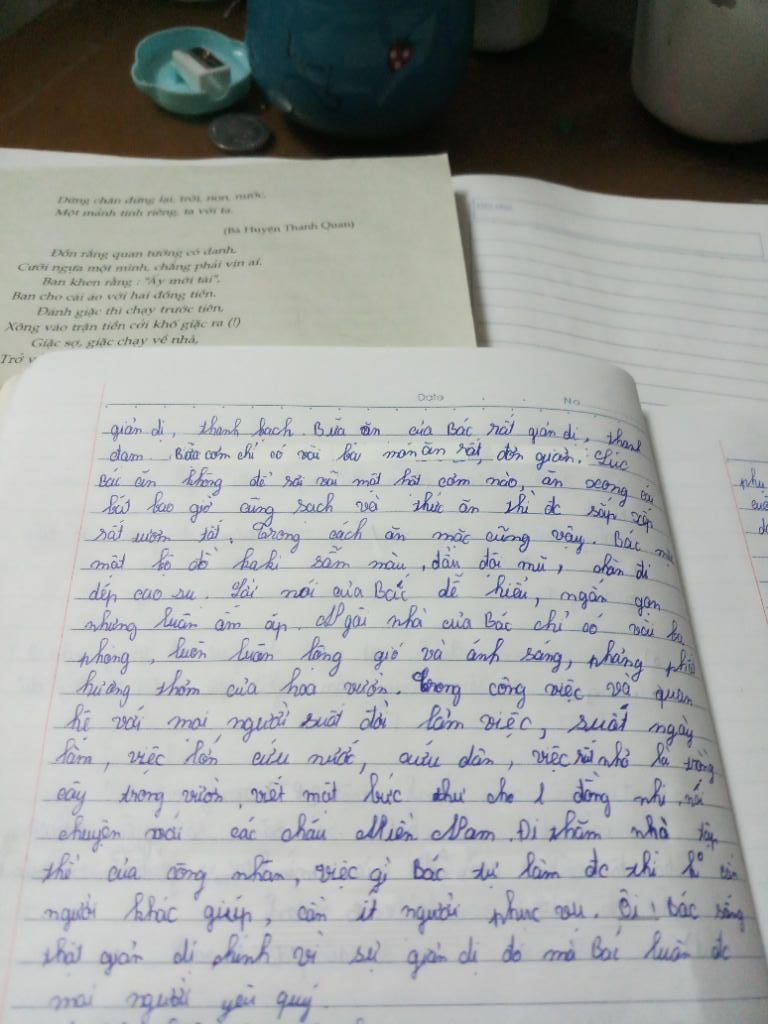 Dừng chân đứng lại, trời, non, nước,
Một mảnh tình riêng, ta với ta.
(Bà Huyện Thanh Quan)
Đồn rằng quan tướng có danh,
Cưỡi ngựa một mình, chẳng phải vịn ai.
Ban khen rằng : "Ấy mới tài",
Ban cho cái áo với hai đồng tiền.
Đánh giặc thì chạy trước tiên,
Xông vào trận tiền cởi khố giặc ra (!)
Giặc sợ, giặc chạy về nhà,
Trở v
Date No
giản dị, thanh bạch. Bữa ăn của Bác rất giản dị, thanh
đạm. Bữa cơm chỉ có vài ba món ăn rất đơn giản. Lúc
Bác ăn không để rơi vãi một hạt cơm nào, ăn xong cái
bát bao giờ cũng sạch và thức ăn thì đc sắp xếp
rất tươm tất. Trong cách ăn mặc cũng vậy. Bác mặc
một bộ đồ kaki sẫm màu, đầu đội mũ, chân đi
dép cao su. Lời nói của Bác dễ hiểu, ngắn gọn
nhưng luôn ấm áp. Ngôi nhà của Bác chỉ có vài ba
phòng, luôn luôn lộng gió và ánh sáng, phảng phất
hương thơm của hoa vườn. Trong công việc và quan
hệ với mọi người suốt đời làm việc, suốt ngày
làm, việc lớn cứu nước, cứu dân, việc rất nhỏ là trồng
cây trong vườn, viết một bức thư cho 1 đồng nhi, nói
chuyện với các cháu Miền Nam. Đi thăm nhà tập
thể của công nhân, việc gì Bác tự làm đc thì k cần
người khác giúp, cần ít người phục vụ. Ôi! Bác sống
thật giản dị chính vì sự giản dị đó mà Bác luôn đc
mọi người yêu quý.
phụ